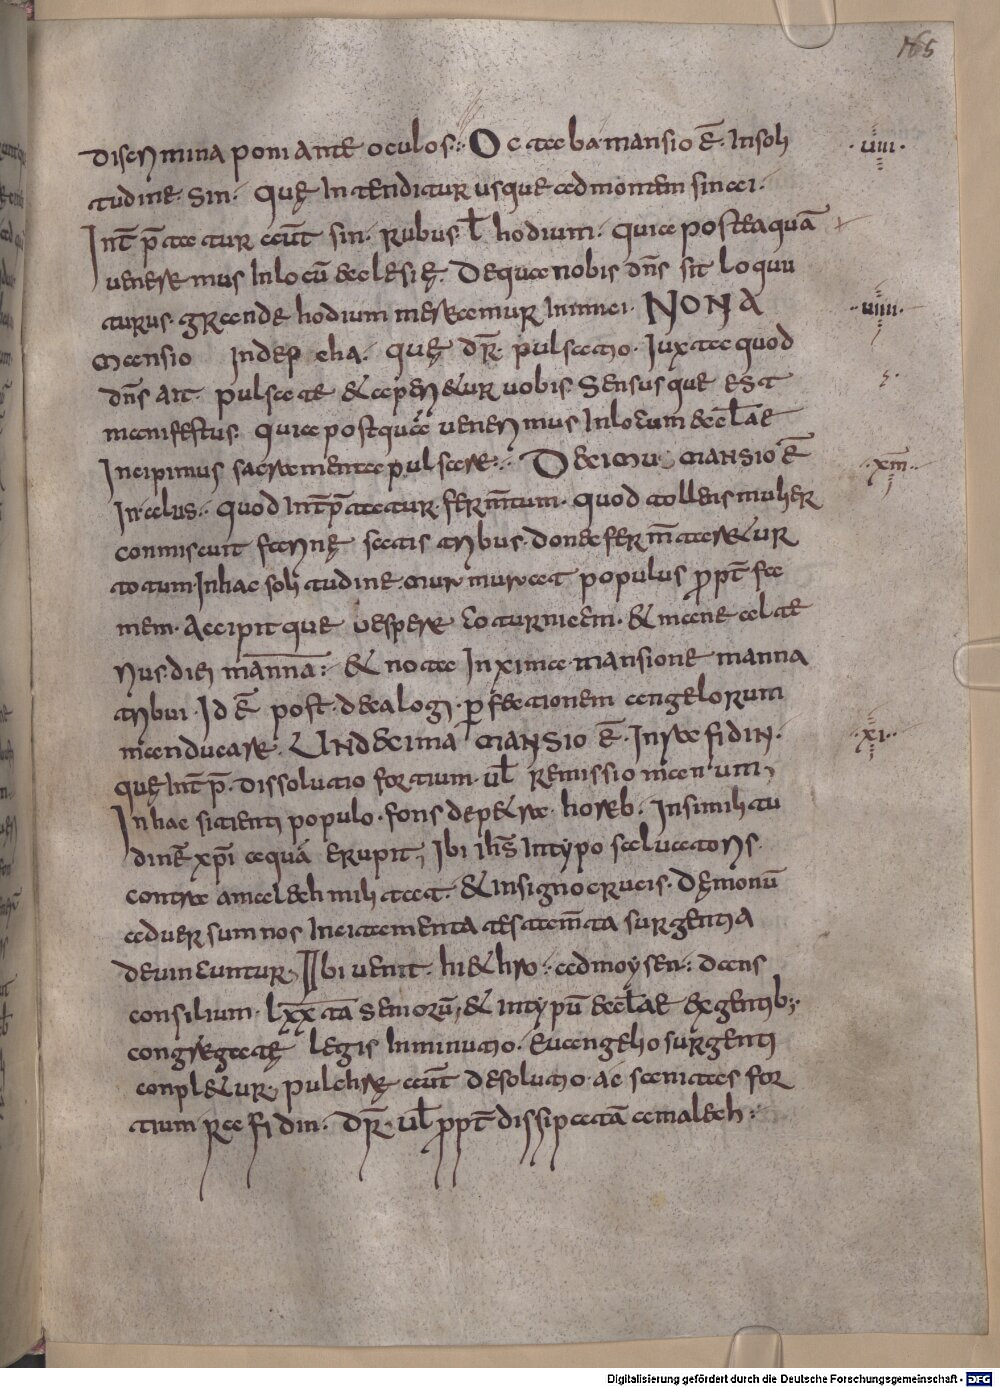 165
discrimina poni ante oculos. Octaba mansio ē. In soli
tudine. sin. quę intenditur usque ad montem sinai.
Int̄p̄tatur aūt sin. rubus. ł hodium. quia posteaquā
uenere mus in locū ecclesię. De qua nobis dn̄s sit loquu
turus. grande hodium meremur inimici. NONA
mansio in dep elia. quę dr̄. pulsatio. Iuxta quod
dn̄s ait. pulsate & aperi&ur uobis. Sensusque est
manifestus. quia postquā uenerimus in locum eccl̄ae
incipimus sacramenta pulsare. Decimu mansio ē
In. elus. quod int̄p̄tatur. ferm̄tum. quod tollens mulier
conmiscuit farinę satis tribus. donec ferm̄tar&ur
totum. In hac soli tudine. murmurat populus prpt̄ fa
mem. Accipit que uespere coturnicem. & in cene cel ate
rius. diei manna: & nota In xima mansione manna
tribui. Id ē post. decalogi. perfectionem angelorum
manducare. Undecima mansio ē. In rafidin.
quę int̄p̄. dissolutio fortium. uł remissio manuum,
In hac sitienti populo. fons de p&ra. horeb. In simili tu
dinē xp̄i aquā erupit, Ibi ih̄s in typo saluatoris
contra amalech militat. & in signo crucis. dęmonū
aduersum nos incitementa testam̄ta surgentia
deuincuntur, Ibi uenit. hi&hro. ad moysen: dans
consilium. lxxta seniorū, & in typū eccl̄ae ex gentib;.
congregatę legis in minutio. euangelio surgenti
conpl&ur, pulchrę aūt desolutio. ac sanitates for
tium rafidin. dr̄. uł prpt̄ dissipatā amalech:
.uiii.
.uiiii.
.xiii.
.xi.
Digitalisierung gefördert durch die Deutsche Forschungsgemeinschaft - DFG